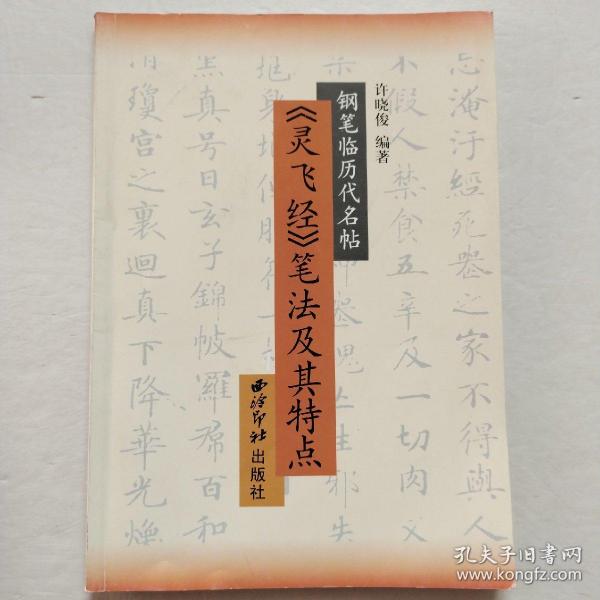 许晓俊 编著
钢笔临历代名帖
《灵飞经》笔法及其特点
西泠印社出版社
忘淹汙經死㞷之家不得與人
不假人禁食五辛及一切肉又
生邪失
羔真号曰玄子錦帔羅帬百和
瓊宮之裏迴真下降華光煥
孔夫子旧书网
www.kongfz.com